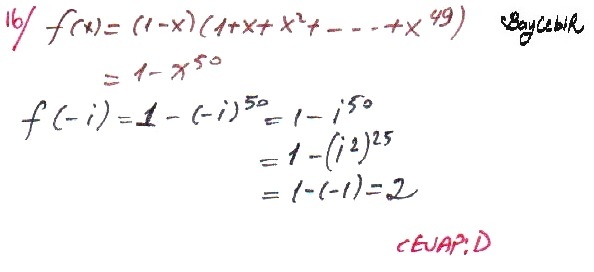 16/ f(x) = (1-x)(1+x+x²+----+x⁴⁹) BayCebiR
= 1-x⁵⁰
f(-i) = 1-(-i)⁵⁰ = 1-i⁵⁰
= 1-(i²)²⁵
= 1-(-1) = 2
CEVAP: D